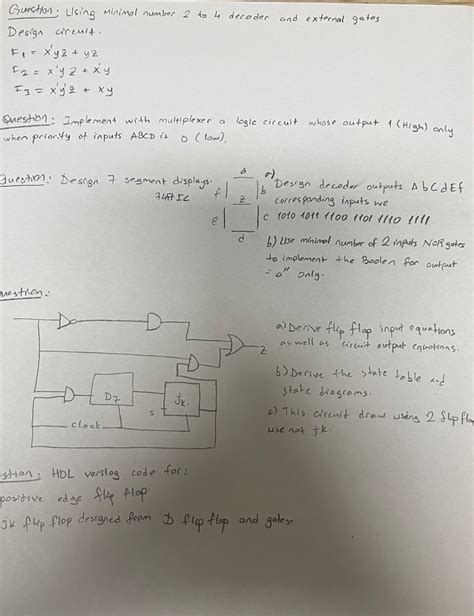 Question: Using minimal number 2 to 4 decoder and external gates
Design circuit.
F1 = x'yz + yz
F2 = x'yz + x'y
F3 = x'y'z + xy
Question: Implement with multiplexer a logic circuit whose output 1 (High) only
when priority of inputs ABCD is 0 (low).
Question: Design 7 segment displays.
a
f
b
z
e
c
d
a)
Design decoder outputs A b C d E f
corresponding inputs we
1010 1011 1100 1101 1110 1111
b) Use minimal number of 2 inputs NOR gates
to implement the Boolen for output
= a" only.
uestion:
z
D7
jk
s
clock
a) Derive flip flop input equations
as well as circuit output equations.
b) Derive the state table and
state diagrams.
c) This circuit draw using 2 flip flop
use not jk.
stion: HDL verilog code for:
positive edge flip flop
jk flip flop designed from D flip flop and gates